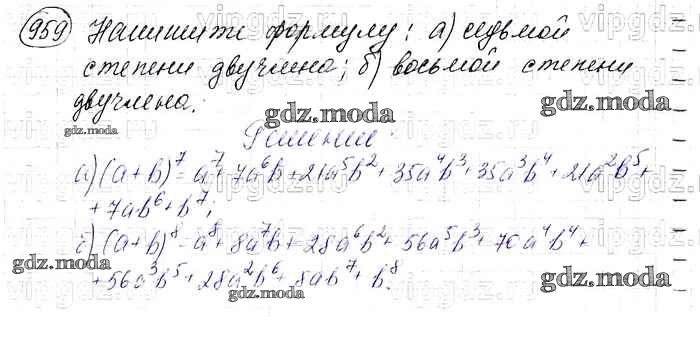 959 Напишите формулу: а) седьмой
степени двучлена; б) восьмой степени
двучлена.
gdz.moda
Решение
gdz.moda
а) (a+b)^7 = a^7 + 7a^6b + 21a^5b^2 + 35a^4b^3 + 35a^3b^4 + 21a^2b^5 +
+ 7ab^6 + b^7;
б) (a+b)^8 = a^8 + 8a^7b + 28a^6b^2 + 56a^5b^3 + 70a^4b^4 +
gdz.moda
+ 56a^3b^5 + 28a^2b^6 + 8ab^7 + b^8.
gdz.moda
gdz.moda